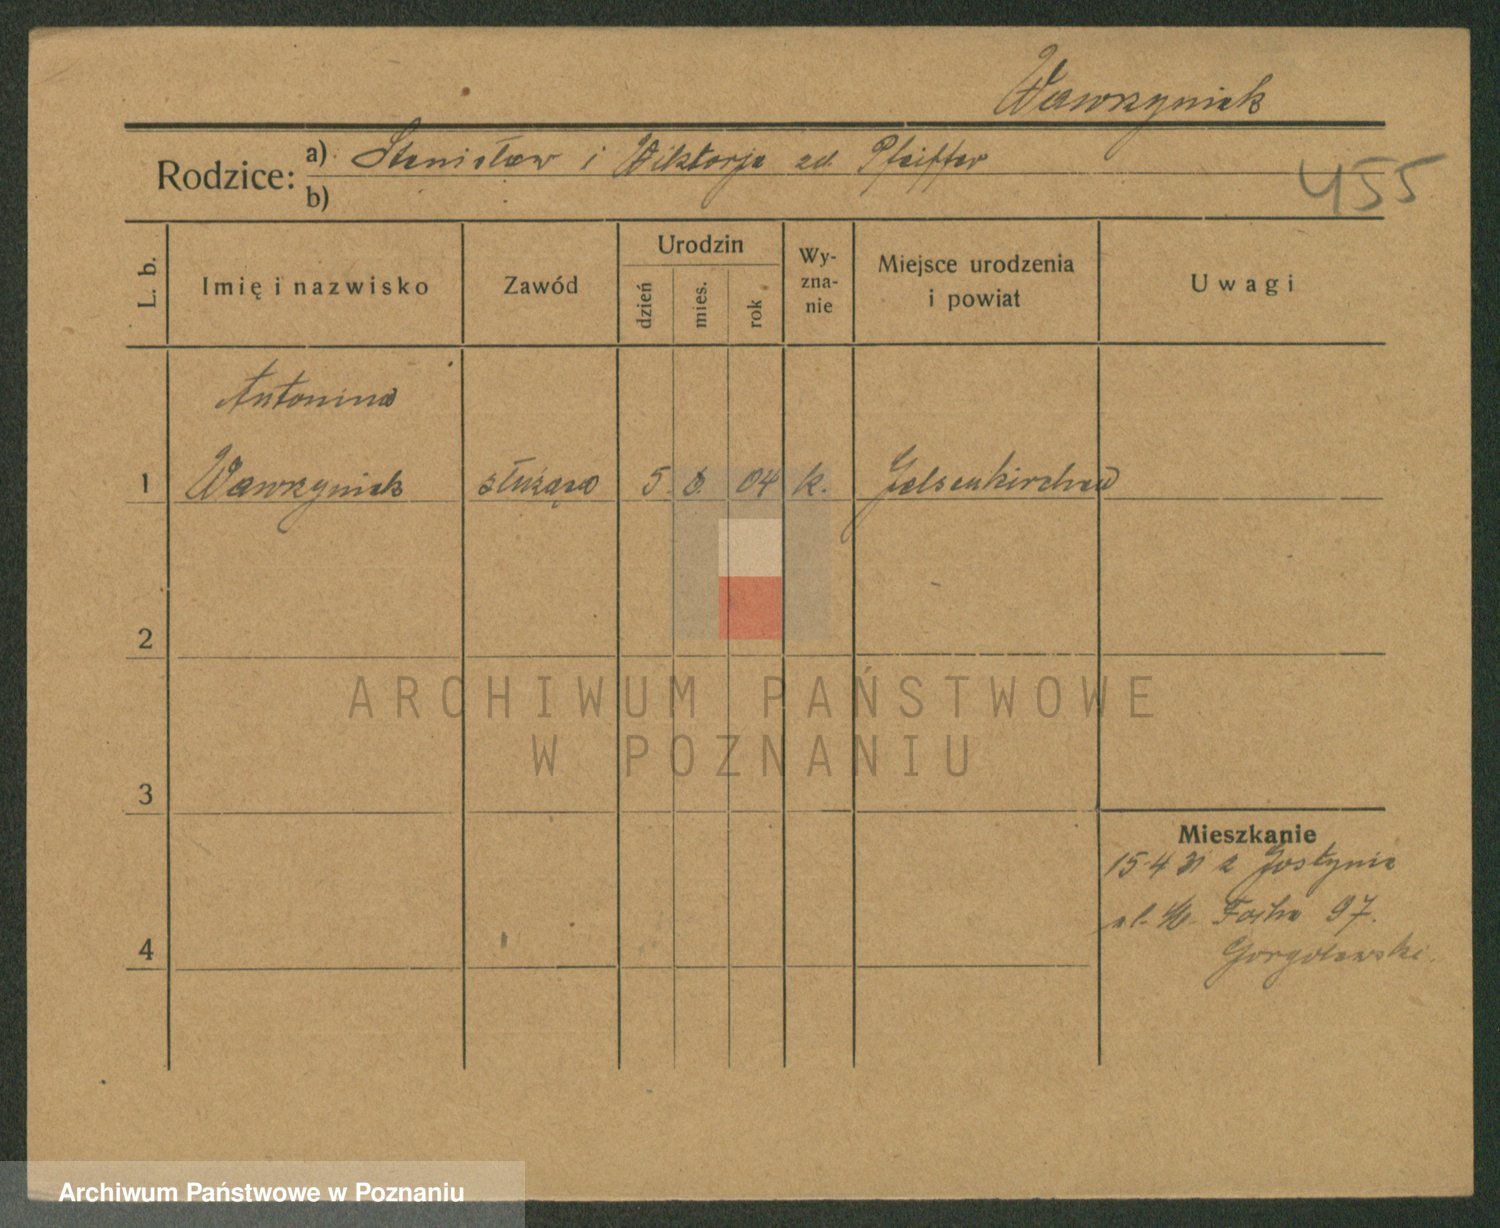 Wawrzyniak
Rodzice: a) Stanisław i Wiktorja zd. Pfeiffer
455
b)
L. b.
Imię i nazwisko
Zawód
Urodzin
dzień
mies.
rok
Wy-
zna-
nie
Miejsce urodzenia
i powiat
Uwagi
Antonina
1 Wawrzyniak służąca 5. 04 k. Gelsenkirchen
2
3
4
Mieszkanie
15 4 31 z Gostynia
ul. M. Focha 97.
Gorgolewski.
ARCHIWUM PAŃSTWOWE
W POZNANIU
Archiwum Państwowe w Poznaniu